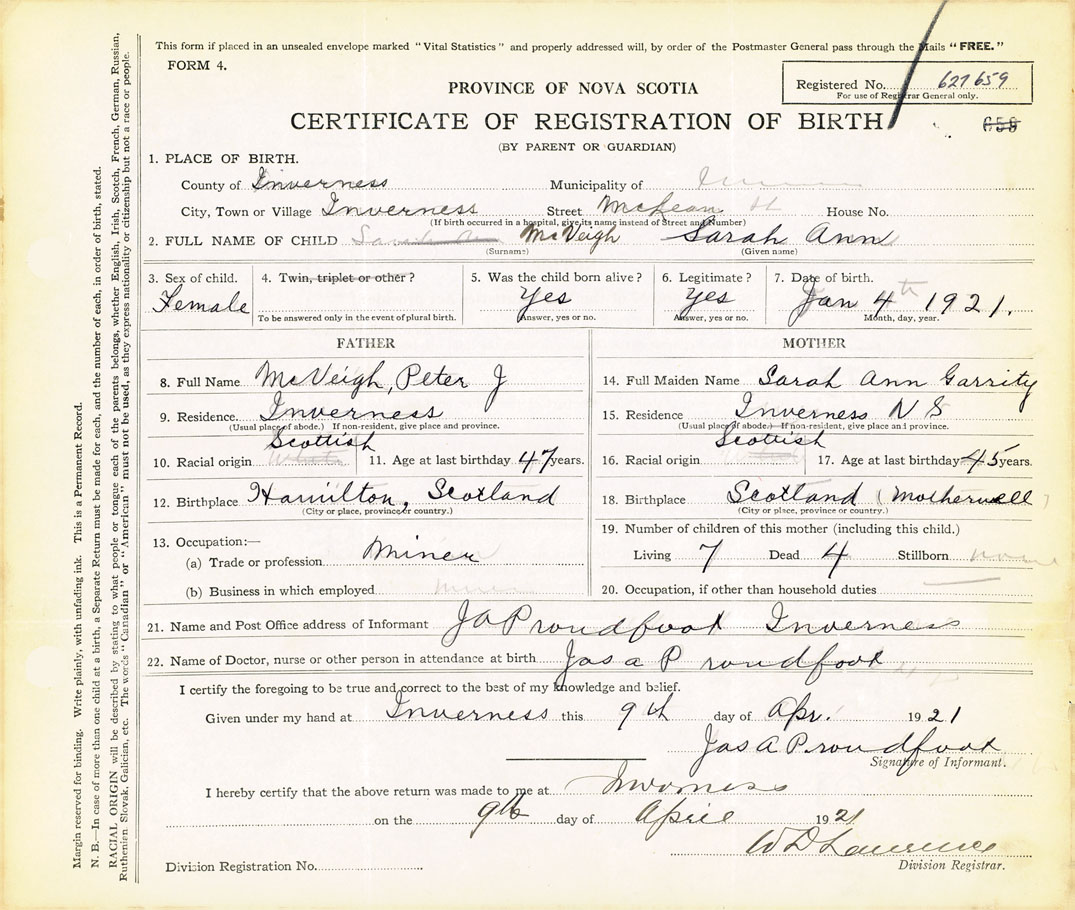 This form if placed in an unsealed envelope marked "Vital Statistics" and properly addressed will, by order of the Postmaster General pass through the Mails "FREE."
FORM 4.
Registered No. 627659
For use of Registrar General only.
PROVINCE OF NOVA SCOTIA
CERTIFICATE OF REGISTRATION OF BIRTH
659
(BY PARENT OR GUARDIAN)
1. PLACE OF BIRTH.
County of Inverness Municipality of
City, Town or Village Inverness Street McLean St House No.
(If birth occurred in a hospital, give its name instead of Street and Number)
2. FULL NAME OF CHILD McVeigh Sarah Ann
(Surname) (Given name)
3. Sex of child. 4. Twin, triplet or other? 5. Was the child born alive? 6. Legitimate? 7. Date of birth.
Female Yes Yes Jan 4th 1921.
To be answered only in the event of plural birth. Answer, yes or no. Answer, yes or no. Month, day, year.
FATHER MOTHER
8. Full Name McVeigh, Peter J 14. Full Maiden Name Sarah Ann Garrity
9. Residence. Inverness 15. Residence Inverness N S
(Usual place of abode.) If non-resident, give place and province. (Usual place of abode.) If non-resident, give place and province.
Scottish Scottish
10. Racial origin 11. Age at last birthday 47 years. 16. Racial origin 17. Age at last birthday 45 years.
12. Birthplace Hamilton, Scotland 18. Birthplace Scotland (Motherwell)
(City or place, province or country.) (City or place, province or country.)
13. Occupation:— 19. Number of children of this mother (including this child.)
(a) Trade or profession Miner Living 7 Dead 4 Stillborn none
(b) Business in which employed 20. Occupation, if other than household duties
21. Name and Post Office address of Informant J A Proudfoot Inverness
22. Name of Doctor, nurse or other person in attendance at birth Jas a Proudfoot
I certify the foregoing to be true and correct to the best of my knowledge and belief.
Given under my hand at Inverness this 9th day of Apr. 1921
Jas A Proudfoot
Signature of Informant.
I hereby certify that the above return was made to me at Inverness
on the 9th day of April 1921
W D Lawrence
Division Registrar.
Division Registration No.
Margin reserved for binding. Write plainly, with unfading ink. This is a Permanent Record.
N. B.—In case of more than one child at a birth, a Separate Return must be made for each, and the number of each, in order of birth, stated.
RACIAL ORIGIN will be described by stating to what people or tongue each of the parents belongs, whether English, Irish, Scotch, French, German, Russian,
Ruthenian, Slovak, Galician, etc. The words "Canadian" or "American" must not be used, as they express nationality or citizenship but not a race or people.